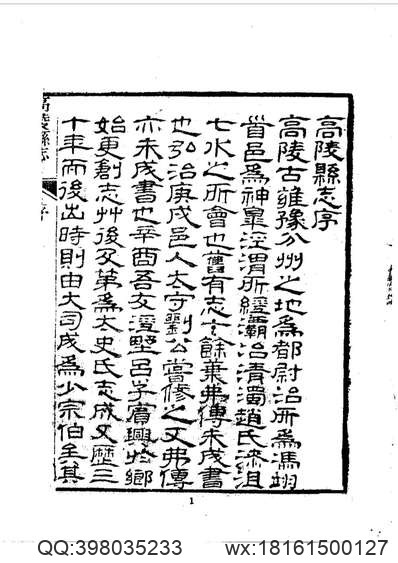 高陵縣志序
高陵古雍豫分州之地為都尉治所為馮翊
首邑為神皐涇渭所經灞清濁趙氏漆沮
七水之所會也舊有志餘弗傳未成書
也弘治庚戌邑人太守劉公嘗修之又弗傳
亦未成書也辛酉吾友涇野呂子賓興於鄉
始更創志艸後及第為太史氏志成又歷三
十年而後出時則由大司成為少宗伯全其
高陵縣志
序
1
QQ:398035233 wx:18161500127